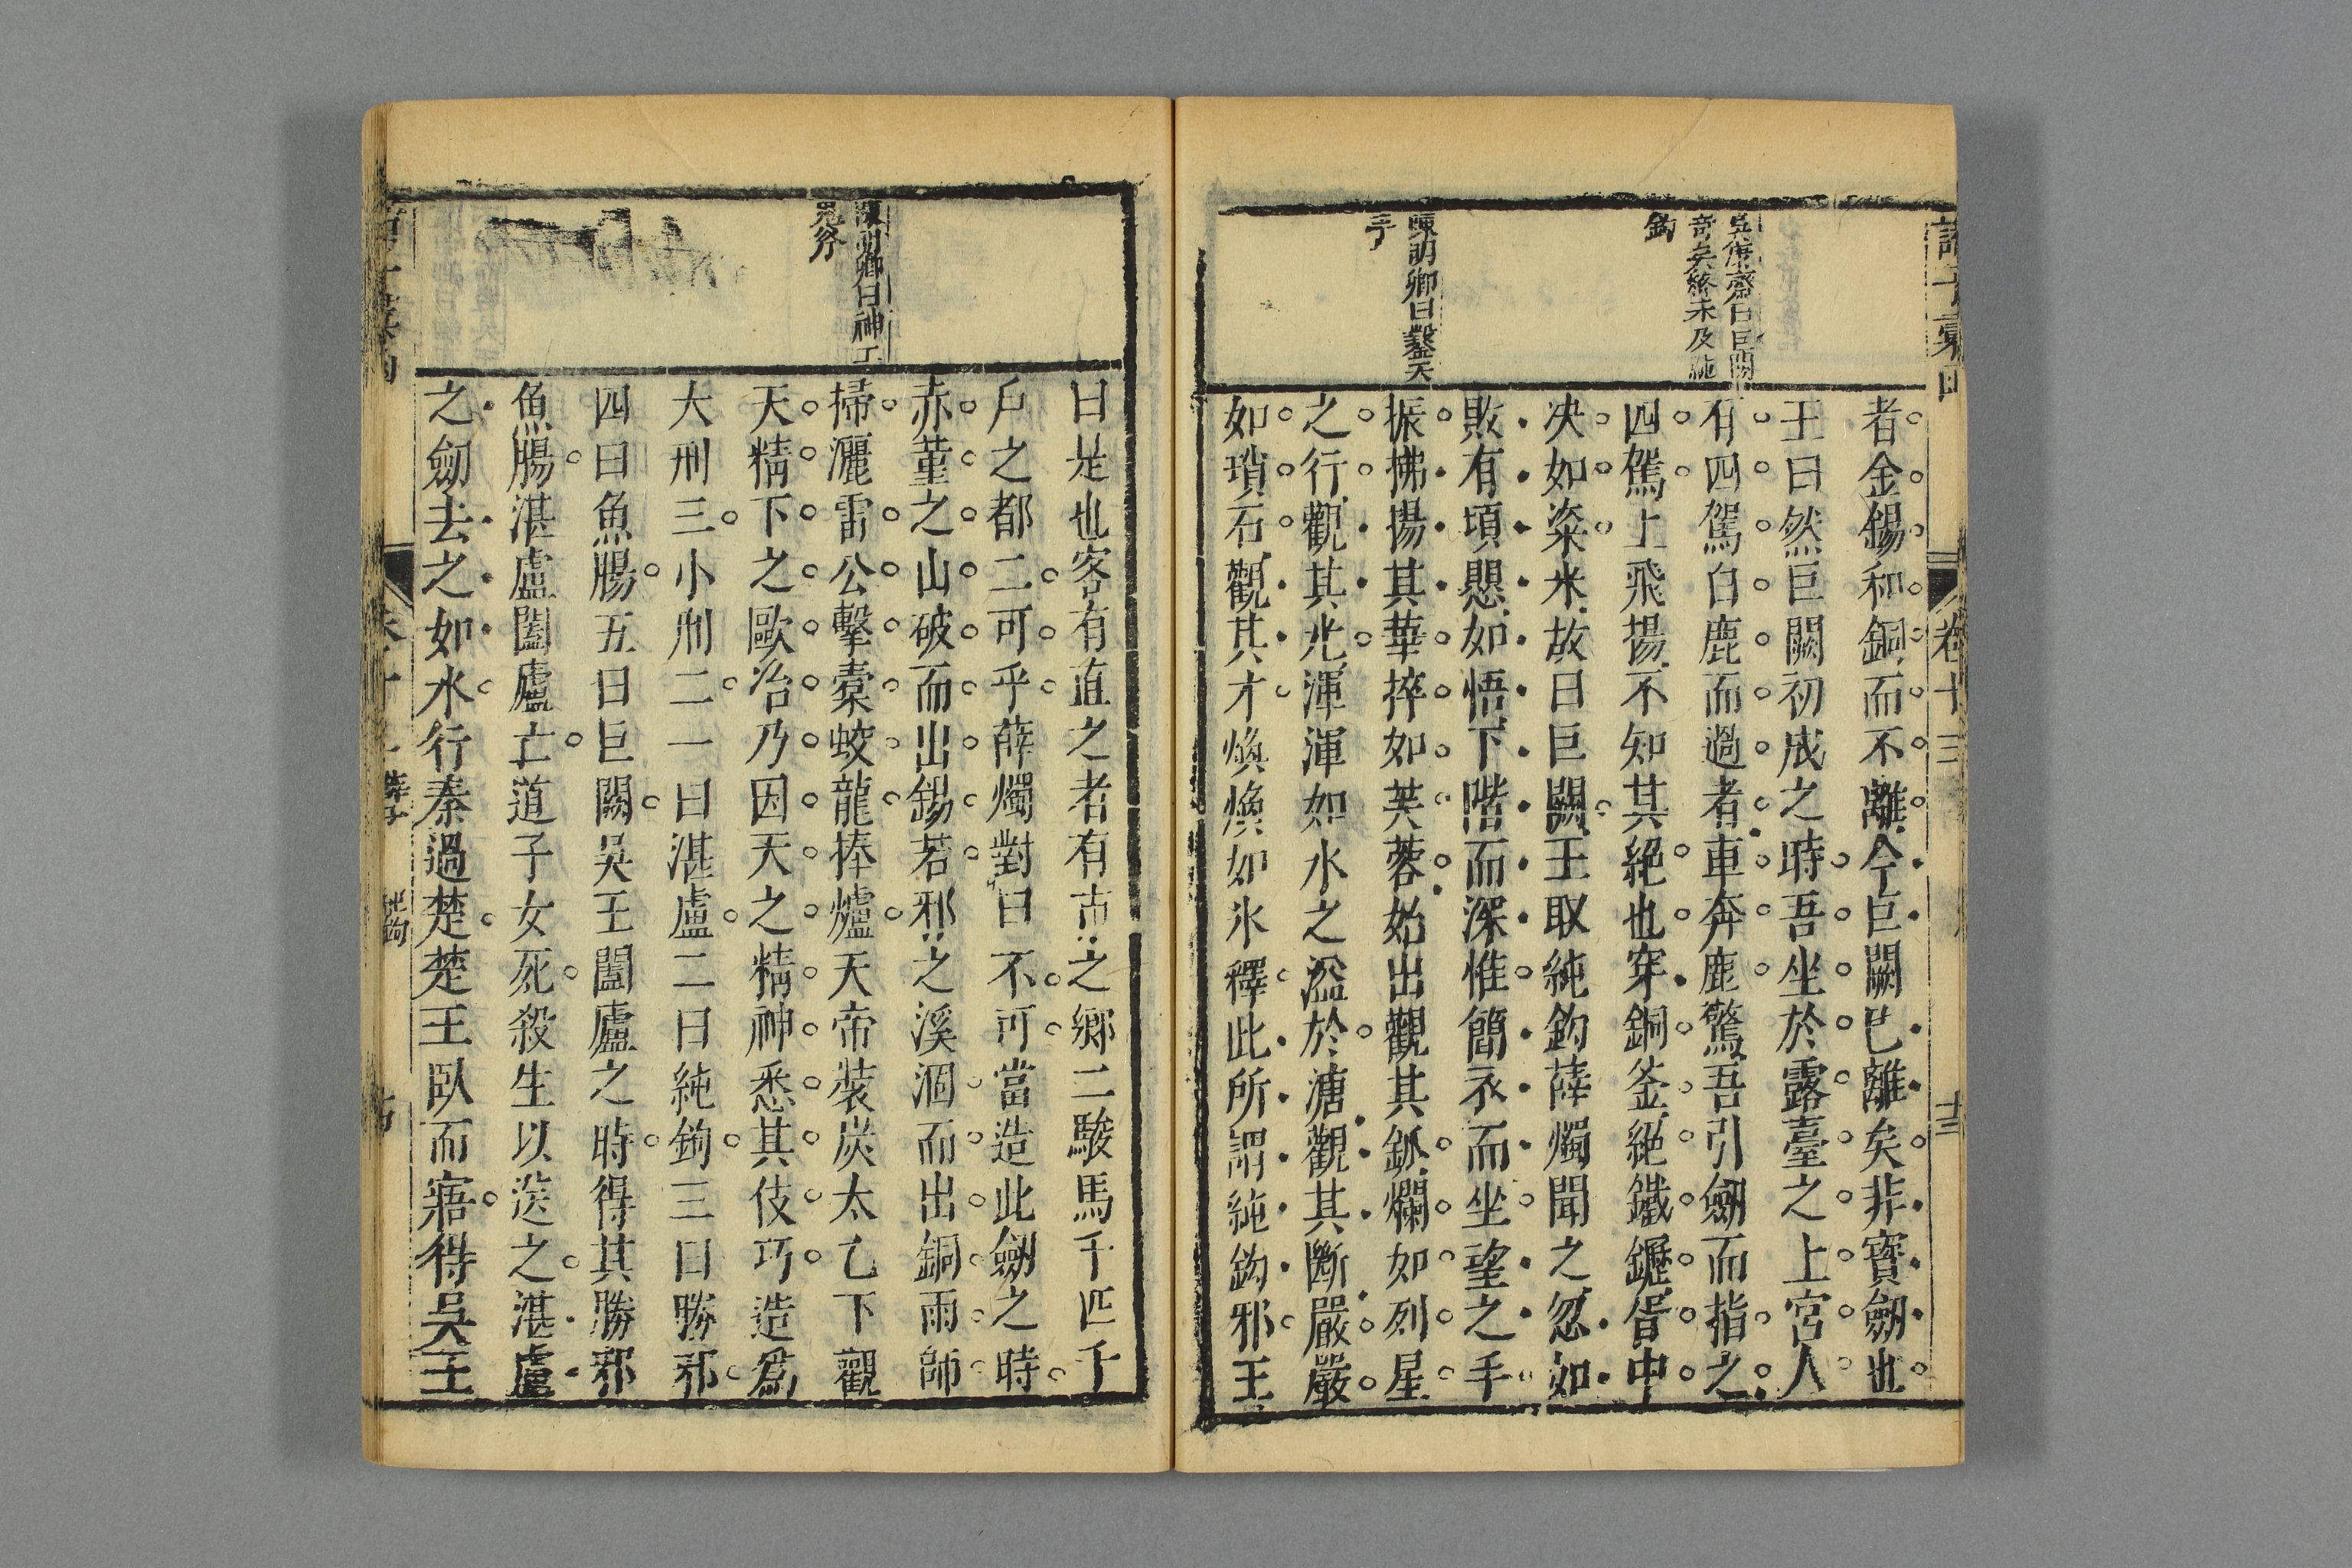 卷十三
十三
吳康齋曰巨闕
奇矣終未及純
鈎
陳明卿曰鑿天
手
者金錫和銅而不離今巨闕已離矣非寶劒也
王曰然巨闕初成之時吾坐於露臺之上宮人
有四駕白鹿而過者車奔鹿驚吾引劒而指之
四駕上飛揚不知其絕也穿銅釜絕鐵鑩胥中
决如粢米故曰巨闕王取純鈎薛燭聞之忽如
敗有頃思如悟下階而深惟簡衣而坐望之手
振拂揚其華捽如芙蓉始出觀其鈲爛如列星
之行觀其光渾渾如水之溢於溏觀其斷嚴嚴
如瑣石觀其才煥煥如氷釋此所謂純鈎邪王
陳明卿曰神工
鬼斧
曰是也客有直之者有市之鄉二駿馬千匹千
戶之都二可乎薛燭對曰不可當造此劒之時
赤堇之山破而出錫若邪之溪涸而出銅雨師
掃灑雷公擊橐蛟龍捧爐天帝裝炭太乙下觀
天精下之歐冶乃因天之精神悉其伎巧造爲
大刑三小刑二一曰湛盧二曰純鈎三曰勝邪
四曰魚腸五曰巨闕吳王闔廬之時得其勝邪
魚腸湛盧闔廬亡道子女死殺生以送之湛盧
之劒去之如水行秦過楚楚王臥而寤得吳王